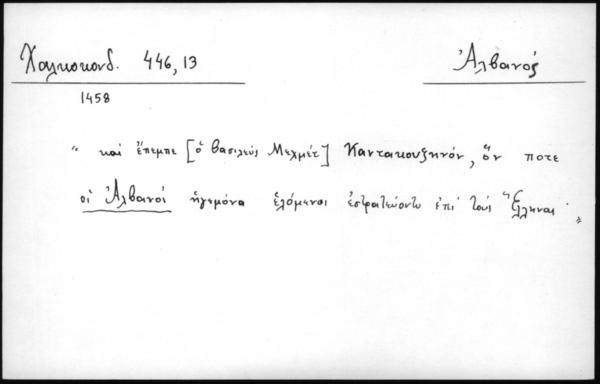 Χαλκοκονδ. 446,13 Ἀλβανός
1458
“ καὶ ἔπεμπε [ὁ βασιλεὺς Μεχμὲτ] Καντακουζηνόν, ὅν ποτε
οἱ Ἀλβανοὶ ἡγεμόνα ἑλόμενοι ἐστρατεύοντο ἐπὶ τοὺς Ἕλληνας „